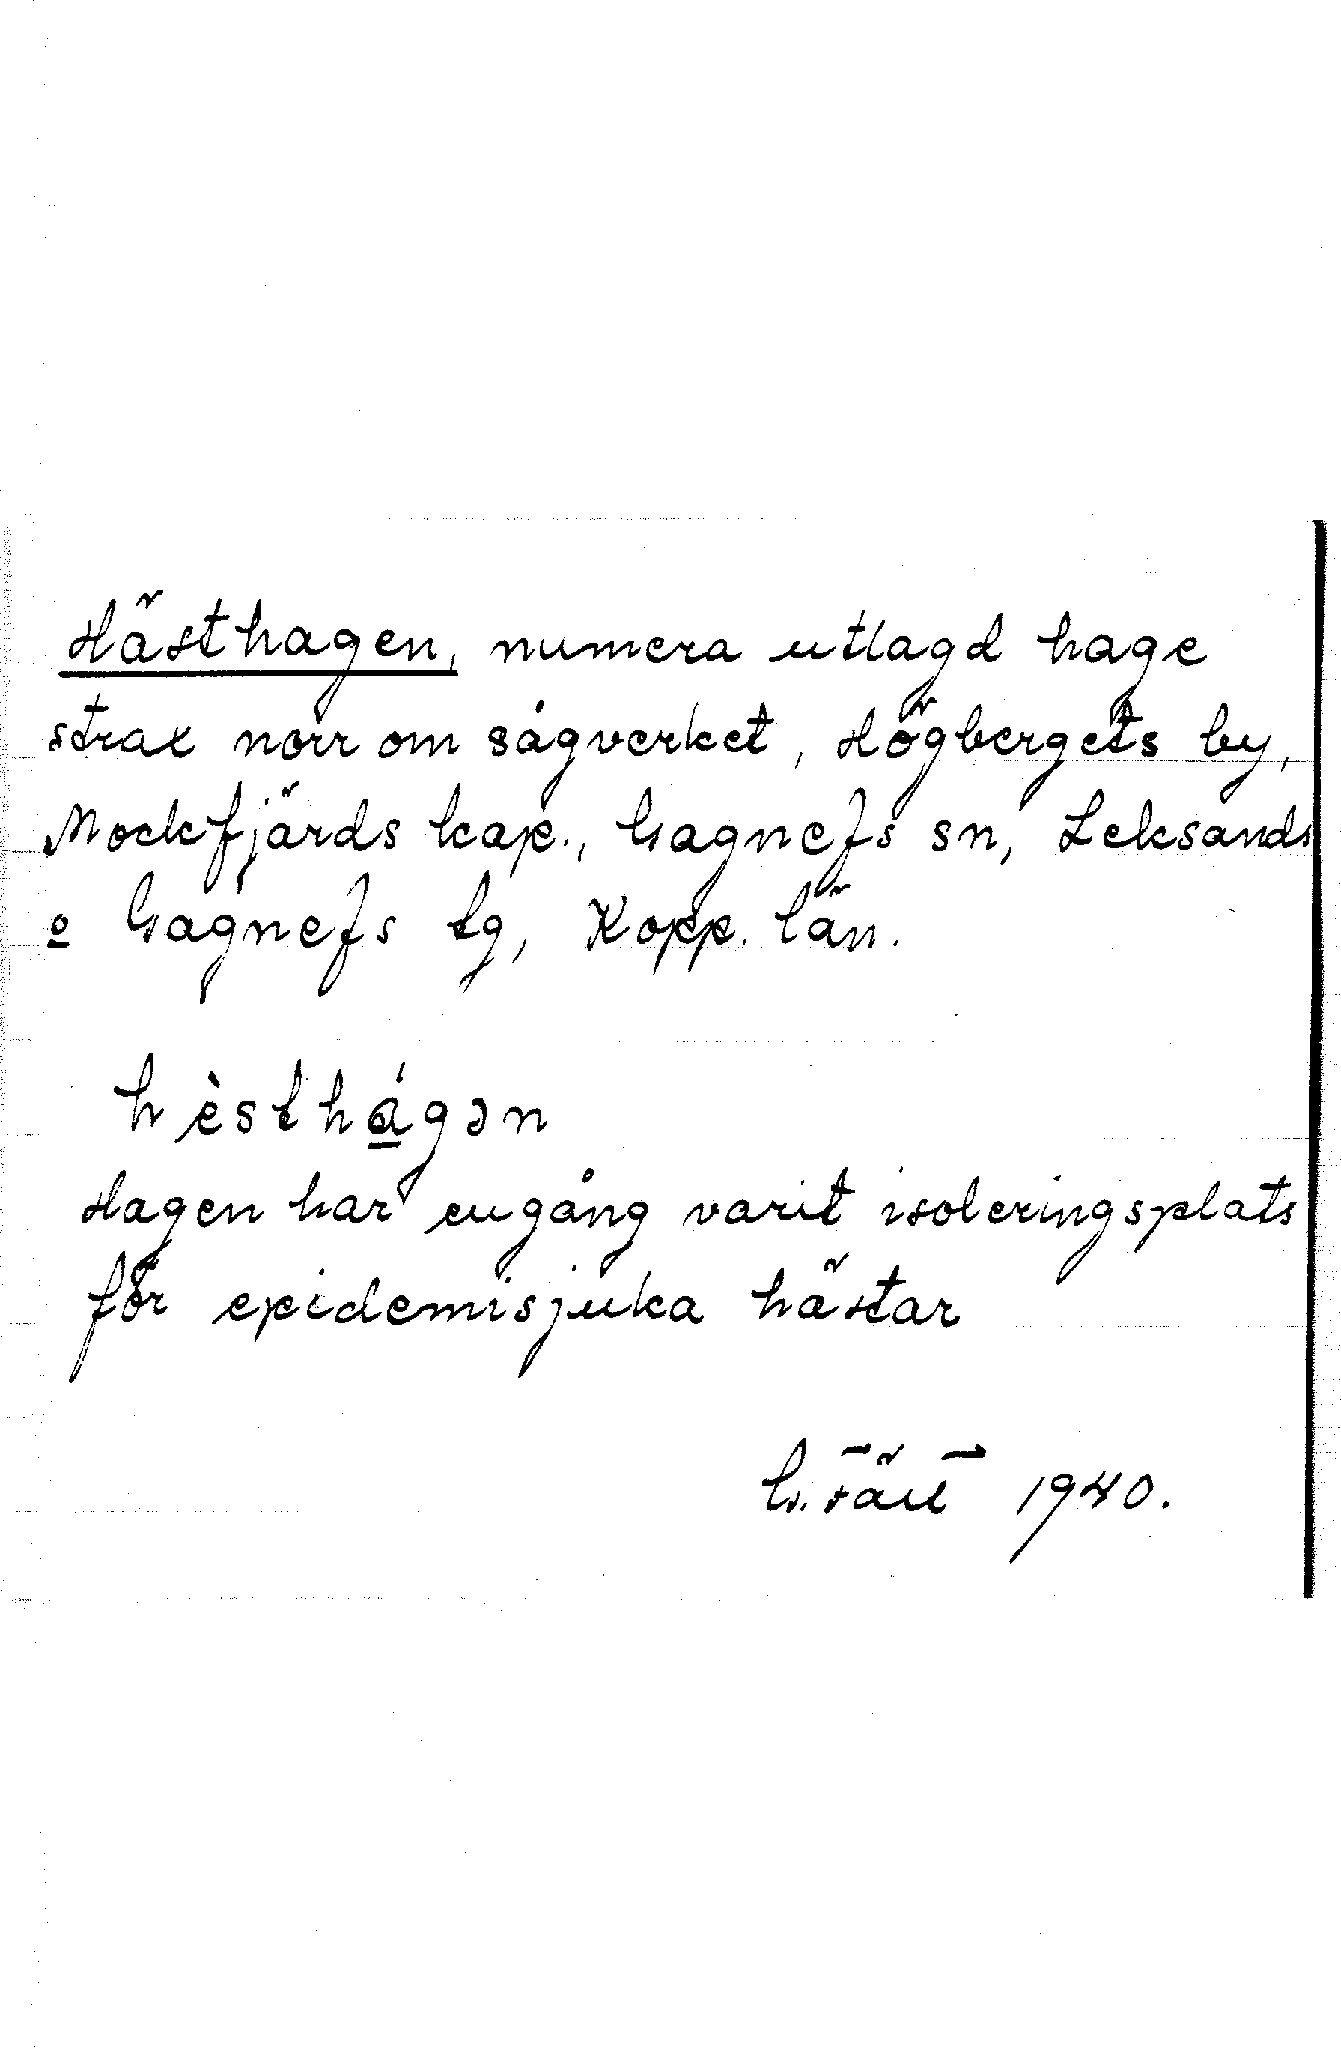 Hästhagen, numera utlagd hage
strax norr om sågverket, Högbergets by,
Mockfjärds kap., Gagnefs sn, Leksands
o Gagnefs tg, Kopp. län.
hèsthágən
Hagen har engång varit isoleringsplats
för epidemisjuka hästar
G. Täll 1940.